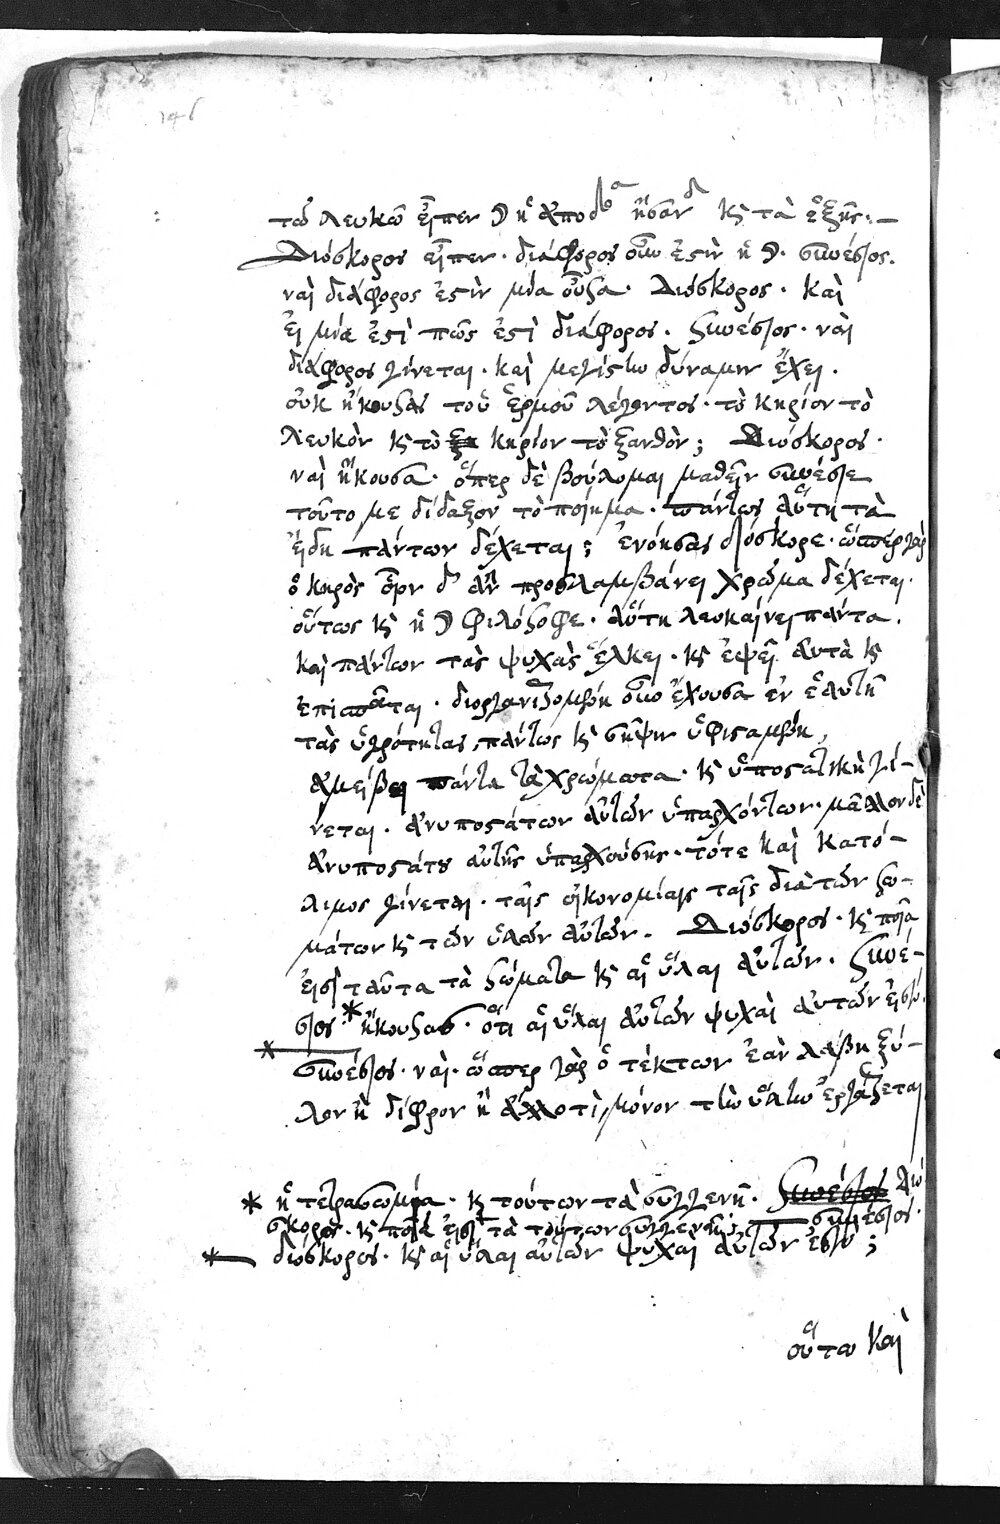 146
τῶ λευκῶ εἶπεν ☽ ἢ ἀπο ἦσαν κ τὰ ἑξῆς·—
Διόσκορος εἶπεν· διάφορος οὖν ἐστὶν ἡ ☽· συνέσιος·
ναὶ διάφορος ἐστὶν μία οὖσα· Διόσκορος· Καὶ
εἰ μία ἐστὶ πῶς ἐστὶ διάφορος· Συνέσιος· ναὶ
διάφορος γίνεται· καὶ μεγίστην δύναμιν ἔχει·
οὐκ ἤκουσας τοῦ ἑρμοῦ λέγοντος· τὸ κηρίον τὸ
λευκὸν κ τὸ κηρίον τὸ ξανθὸν; Διόσκορος·
ναὶ ἤκουσα· ὅπερ δὲ βούλομαι μαθεῖν συνέσιε
τοῦτο με δίδαξον τὸ ποίημα· πάντως αὕτη τὰ
εἴδη πάντων δέχεται; ἐνόησας διόσκορε· ὥσπερ γὰρ
ὁ κηρὸς οἷον δ' ἂν προσλαμβάνει χρῶμα δέχεται·
οὕτως κ ἡ ☽ φιλόσοφε· αὕτη λευκαίνει πάντα·
καὶ πάντων τὰς ψυχὰς ἕλκει· κ ἑψεῖ αὐτὰ κ
ἐπισπᾶται· διοργανιζομένη οὖν ἔχουσα ἐν ἑαυτῇ
τὰς ὑγρότητας πάντως κ σῆψιν ὑφισταμένη,
ἀμείβει πάντα τὰ χρώματα· κ ὑποστατικὴ γί-
νεται· ἀνυποστάτων αὐτῶν ὑπαρχόντων· μᾶλλον δὲ
ἀνυποστάτου αὐτῆς ὑπαρχούσης· τότε καὶ κατό-
χιμος γίνεται· ταῖς οἰκονομίαις ταῖς διὰ τῶν σω-
μάτων κ τῶν ὑλῶν αὐτῶν· Διόσκορος· κ ποῖα
εἰσὶ ταῦτα τὰ σώματα κ αἱ ὗλαι αὐτῶν· Συνέ-
σιος· * ἤκουσας· ὅτι αἱ ὗλαι αὐτῶν ψυχαὶ αὐτῶν εἰσίν·
* συνέσιος· ναί· ὥσπερ γὰρ ὁ τέκτων ἐὰν λάβη ξύ-
λον ἢ δίφρον ἢ ἄλλο τὶ, μόνον τὴν ὕλην ἐργάζεται
* ἡ τετρασωμία· κ τούτων τὰ συγγενῆ· Συνέσιος Διό
σκορος· κ ποῖα εἰσὶ τὰ τούτων συγγενῆς συνέσιος·
* διόσκορος· κ αἱ ὗλαι αὐτῶν ψυχαὶ αὐτῶν εἰσίν;
οὕτω καὶ